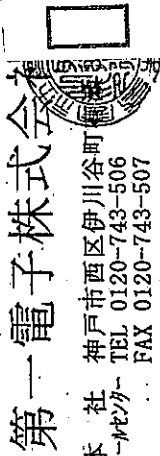 第一電子株式会
本 社 神戸市西区伊川谷町
ールセンター TEL 0120-743-506
FAX 0120-743-507